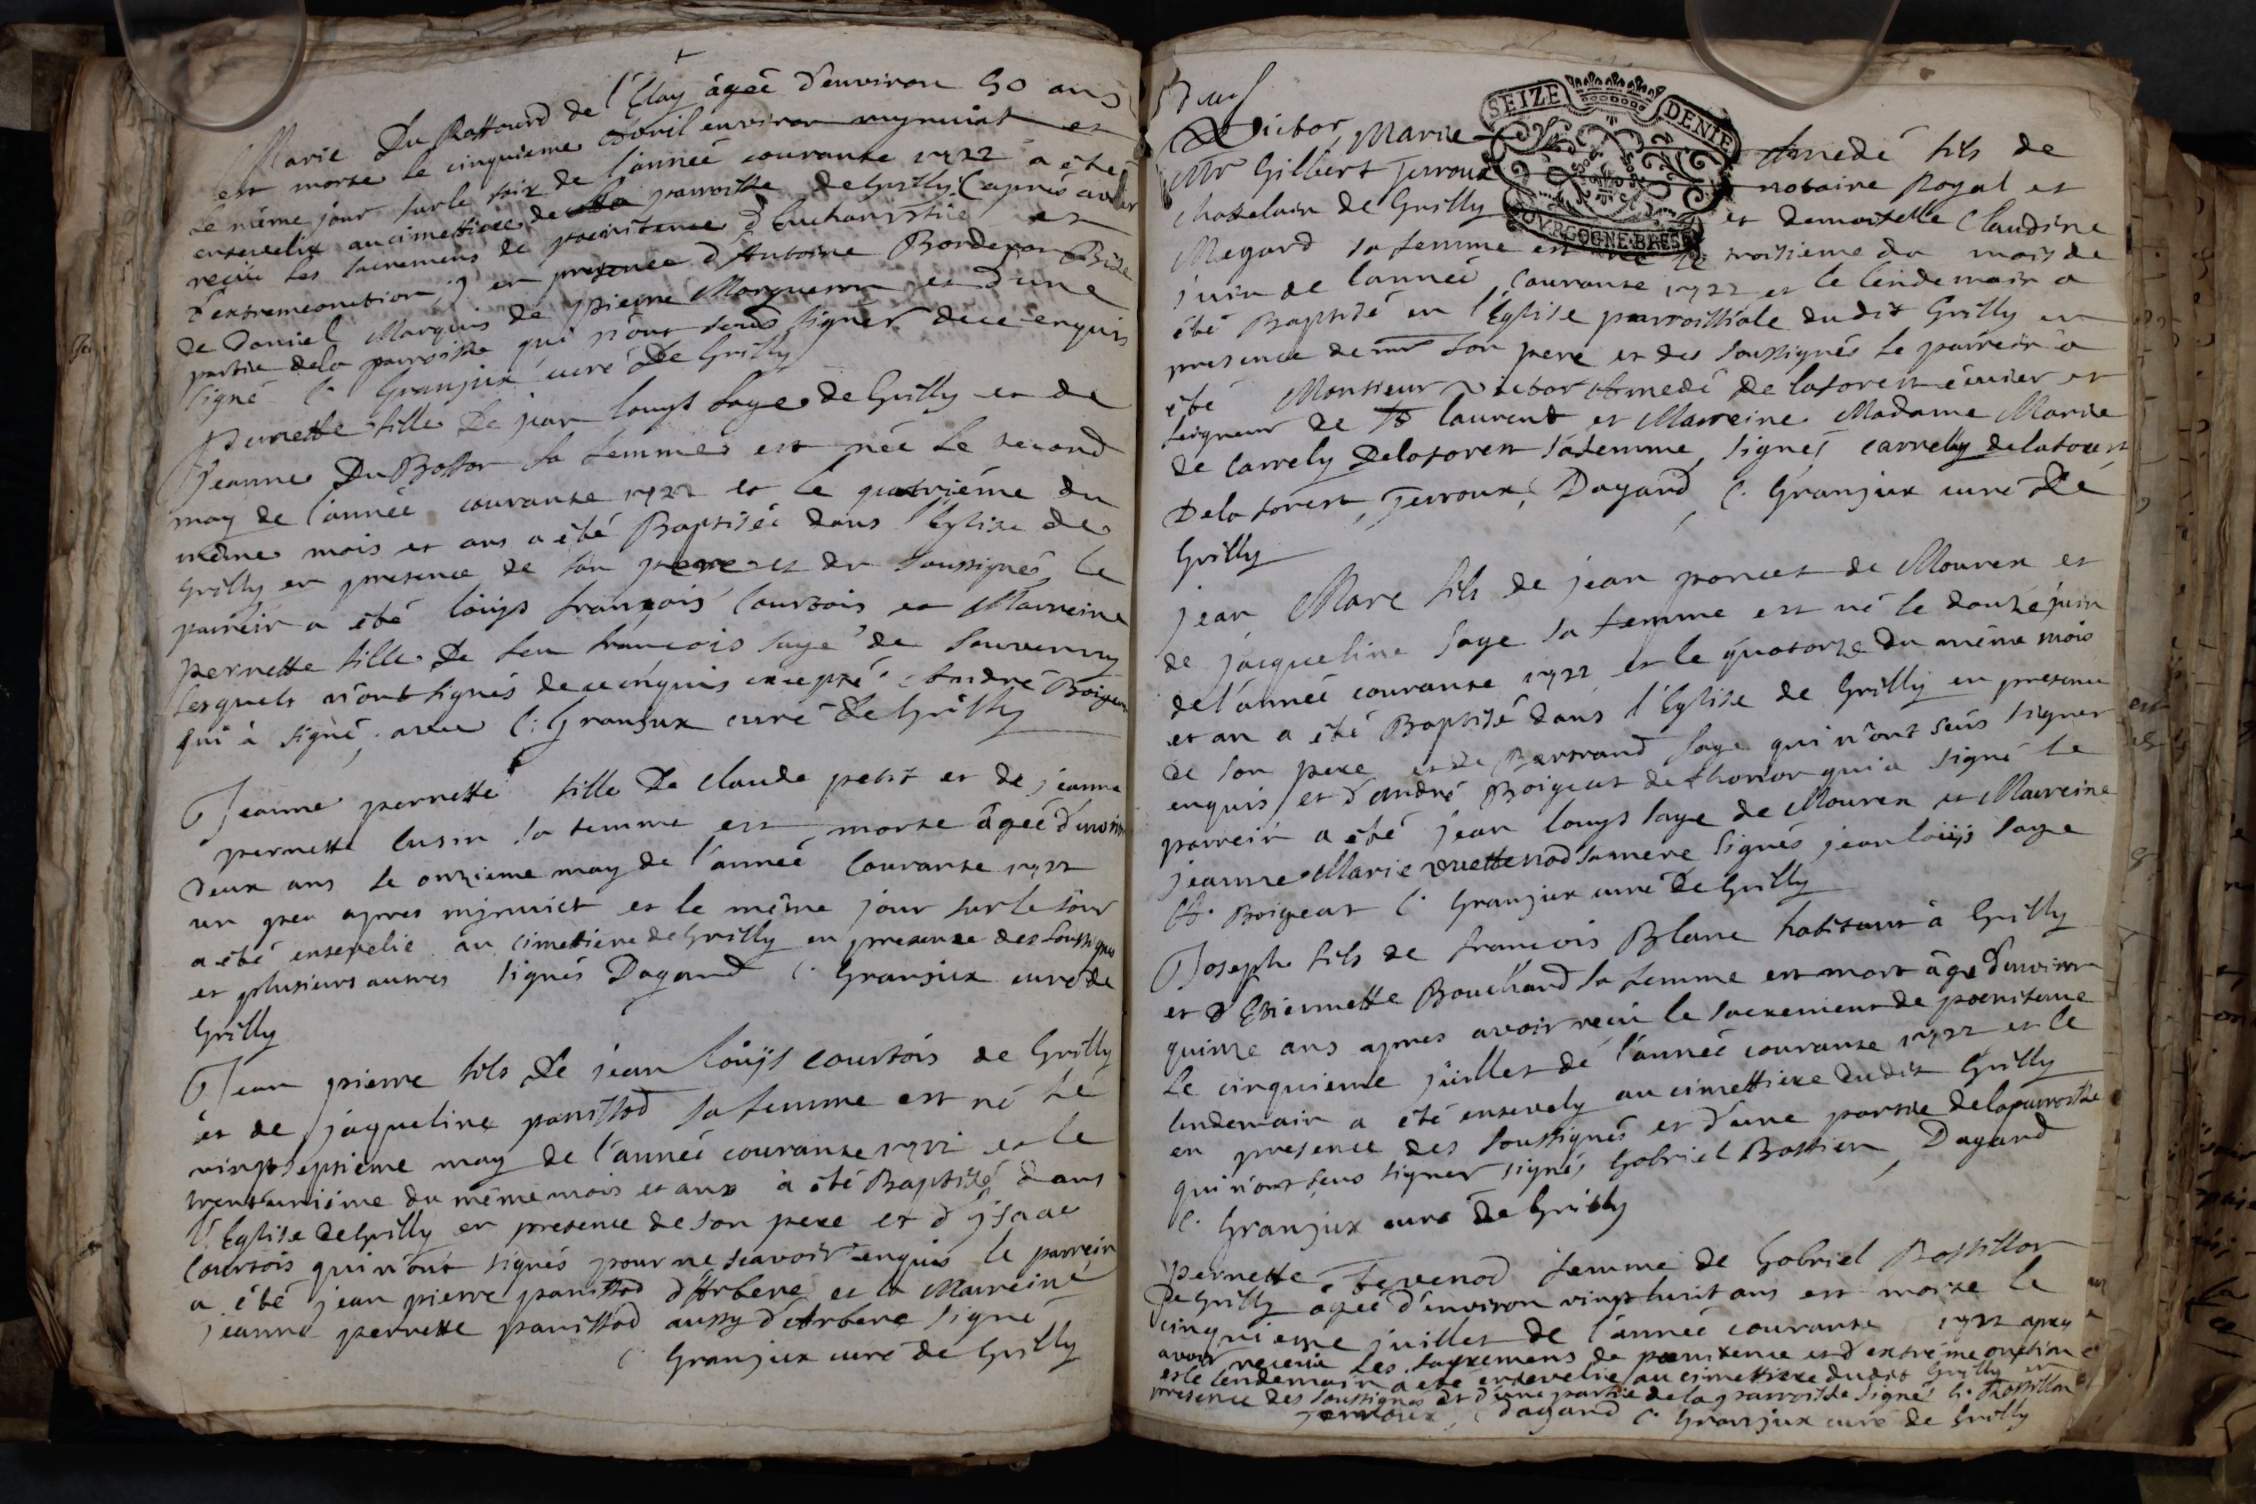 Marie Du Rattourd de l'Clay âgée d'environ 50 ans
est morte le cinquieme Avril environ mynuict et
le même jour sur le soir de l'année courante 1722 a été
ensevelie au cimettiere de la parroisse de Grilly (après avoir
reçeu les sacremens de poenitence d'Eucharistie et
d'extremeonction,) en presence d'Antoine Borderon Bise
de Daniel Marquis de pierre Marqueron et d'une
partie de la parroisse qui n'ont sceus signer de ce enquis
signé C. Granjux curé De Grilly
Pernette fille De jean louys sage de Grilly et de
Jeanne DuBossor sa femme est née le second
may de l'année courante 1722 et le quatriéme du
même mois et ans a été Baptisée dans l'Eglise de
Grilly en presence de son pere et des soussignés, le
parrein a été louys françois Courtois et Marreine
Pernette fille De feu françois sage de Sauverny
lesquels n'ont signés de ce enquis excepté Andre Boigeat
qui à signé, avec C. Granjux curé de Grilly
Jeanne pernette fille De claude petit et de jeanne
pernette lusin sa femme est morte âgée d'environ
deux ans le onzieme may de l'année Courante 1722
un peu apres mynuict et le même jour sur le soir
a été ensevelie au cimetiere de Grilly en presence des soussignés
et plusieurs autres signés Dagand C. Granjux curé de
Grilly
Jean pierre fils De jean loüys courtois de Grilly
et de jaqueline panissod sa femme est né le
vingtseptieme may de l'année courante 1722 et le
trentuniéme du même mois et ans à été Baptisé dans
l'Eglise de Grilly en presence de son pere et d'ysaac
Courtois qui n'ont signés pour ne scavoir enquis le parrein
a été jean pierre panissod d'Arbere et la Marreine
jeanne pernette panissod aussy d'Arbere signé
C. Granjux curé de Grilly
SEIZE DENIE
BOVRGOGNE·BRESSE
Victor, Marie Amedé fils de
Mr Gilbert Jerroux notaire Royal et
chatelain de Grilly et demoiselle Claudine
Megard sa femme est né le troisieme du mois de
juin de l'année Courante 1722 et le lendemain a
été Baptisé en l'Eglise parroissiale dudit Grilly en
presence de mr son pere et des soussignés le parrein a
été Monsieur Victor Amedé De laforest écuier et
seigneur de St laurent et Marreine Madame Marie
de Carrely Delaforest sa femme, signés carrelly delaforest
Delaforest, Jerroux, Dagand, C. Granjux curé De
Grilly
jean Marc fils de jean poncet de Mourex et
de jacqueline sage sa femme est né le douze juin
de l'année courante 1722 et le quatorze du même mois
et an a été Baptisé dans l'Eglise de Grilly en presence
de son pere et de Bertrand sage qui n'ont sceus signer
enquis et d'andré Boigeat de thonon qui a signé le
parrein a été jean louys sage de Mourex et Marreine
jeanne Marie vuettenod sa mere signés jean loüys sage
A. Boigeat C. Granjux curé De Grilly
Joseph fils de francois Blanc habitant à Grilly
et d'Etiennette Bouchard sa femme est mort âgé d'environ
quinze ans apres avoir reçeu le sacrement de poenitence
Le cinquieme juillet de l'année courante 1722 et le
lendemain a été ensevely au cimettiere dudit Grilly
en presence des soussignés et d'une partie de la parroisse
qui n'ont sceus signer signés Gabriel Bastien, Dagand
C. Granjux curé de Grilly
pernette Tevenod femme de Gabriel Rossillon
De Grilly âgée d'environ vingt huit ans est morte le
cinquieme juillet de l'année courante 1722 apres
avoir receu les sacremens de poenitence et d'extréme onction
et le lendemain a été ensevelie au cimettiere dudit Grilly en
presence des soussignés et d'une partie de la parroisse signés G. Rossillon
Jerroux, Dagand C. Granjux curé de Grilly